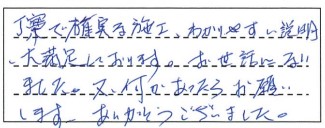 丁寧で確実な施工、わかりやすい説明
大満足しております。お世話になり
ました。又、何かあったらお願い
します。ありがとうございました。